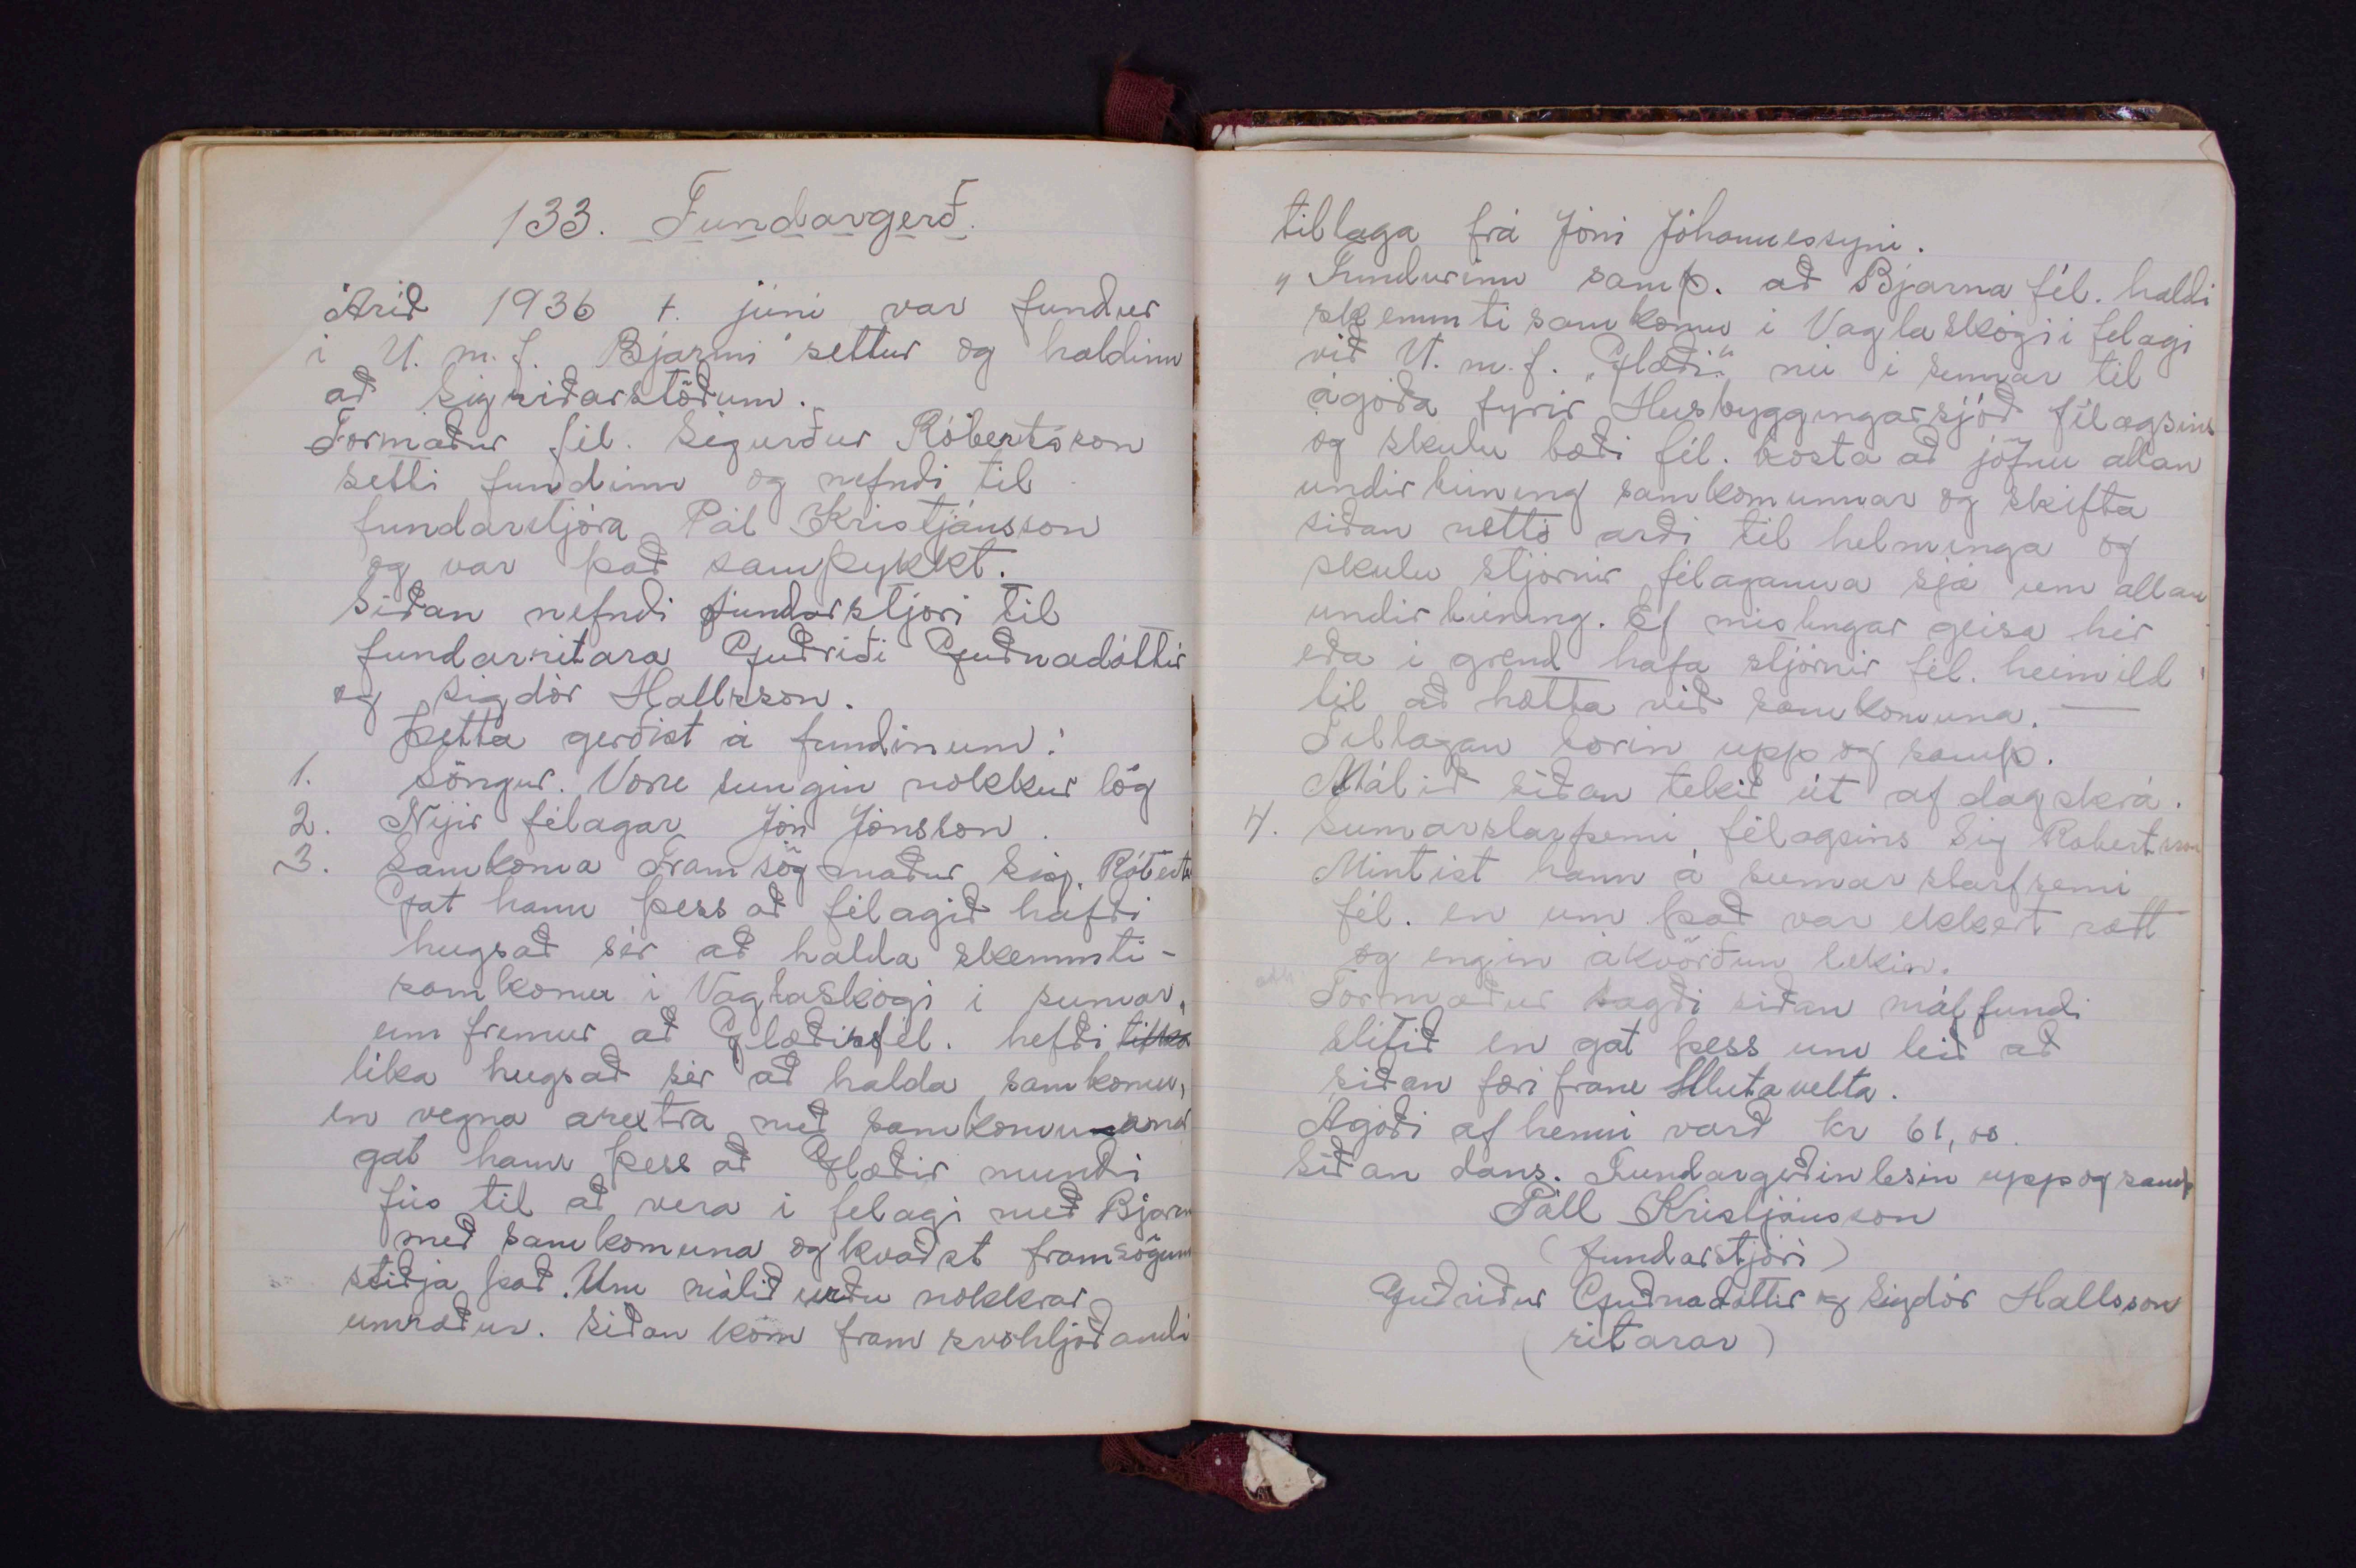 133. Fundargerð.
Árið 1936 1. júní var fundur
í U. m. f. Bjarmi" settur og haldinn
að Sigriðarstöðum.
Formaður fél. Sigurður Róbertsson
setti fundinn og nefndi til
fundarstjóra Pál Kristjánsson
og var það samþykkt.
Siðan nefndi fundarstjori til
fundarritara Guðriði Guðnadóttir
og Sigdór Hallsson.
Þetta gerðist á fundinum:
1. Söngur. Voru sungin nokkur lög
2. Nyir félagar Jón Jónsson.
3. Samkoma Framsögmaður Sig. Róberts
Gat hann þess að félagið hafði
hugsað sér að halda skemmti-
samkomu í Vaglaskógi í sumar,
um fremur að Glæðisfél. hefði
lika hugsað sér að halda samkomu,
en vegna arextra með samkomurnar
gat hann þess að Glæðir mundi
fús til að vera i felagi með Bjarm
með samkomuna og kvaðst framsögum
stiðja það. Um málið urðu nokkrar
umræður. Siðan kom fram svohljóðandi
tillaga frá Jóni Jóhannessyni.
„Fundurinn samþ. að Bjarma fél. haldi
skemmtisamkomu i Vaglaskógi i felagi
við U. m. f. „Glæði" nú i sumar til
ágóða fyrir Husbyggingarsjóð félagsins
og skulu bæði fél. kosta að jöfnu allan
undirbúning samkomunnar og skifta
siðan nettó arði til helminga og
skulu stjórnir félaganna sjá um allan
undirbúning. Ef mislingar geisa hér
eða i grend hafa stjórnir fél. heimild
til að hætta við samkomuna. —
Tillagan borin upp og samþ.
Málið siðan tekið út af dagskrá.
4. Sumarstarfsemi félagsins Sig Robertsson
Mintist hann á sumarstarfsemi
fél. en um það var ekkert rætt
og engin ákvörðun tekin.
Formaður sagði siðan málfundi
slitið en gat þess um leið að
siðan færi fram Hlutavelta.
Ágóði af henni varð kr 61,00.
Siðan dans. Fundargeðin lesin upp og samþ
Páll Kristjánsson
(fundarstjóri)
Guðriður Guðnadóttir og Sigdór Hallsson
(ritarar)